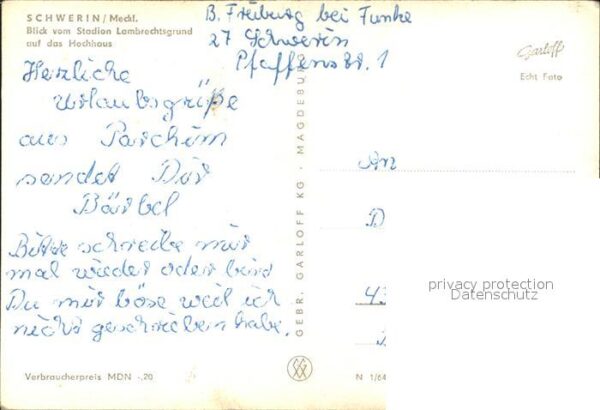 SCHWERIN/Meckl.
Blick vom Stadion Lambrechtsgrund
auf das Hochhaus
B. Freiburg bei Funke
27 Schwerin
Pfaffenstr. 1
Garloff
Echt Foto
Herzliche
Urlaubsgrüße
aus Parchim
sendet Dir
Bärbel
Bitte schreibe mir
mal wieder oder bist
Du mir böse weil ich
nicht geschrieben habe.
GEBR. GARLOFF KG · MAGDEBURG
An
D
43
privacy protection
Datenschutz
Verbraucherpreis MDN -,20
N 1/64